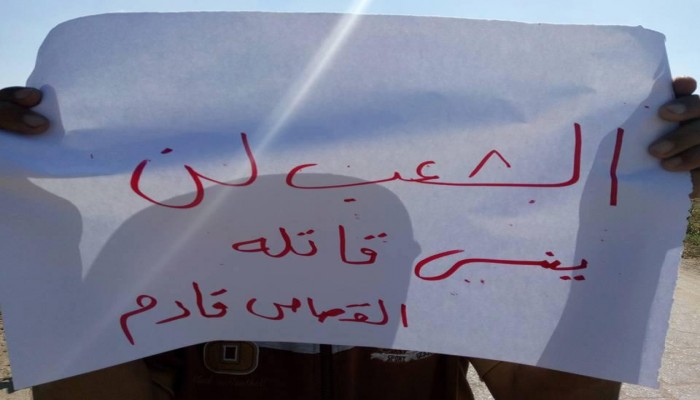 الشعب لن
ينسى قاتله
القصاص قادم